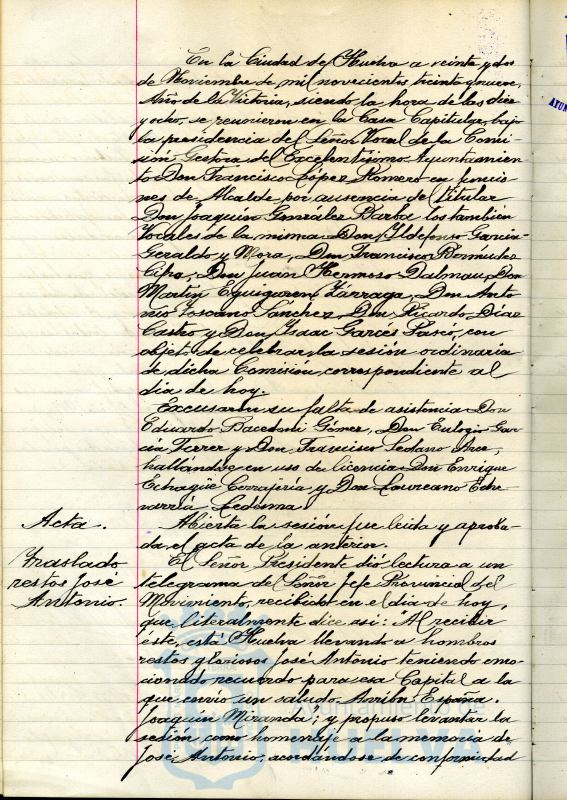 En la Ciudad de Huelva a veinte y dos
de Noviembre de mil novecientos treinta y nueve,
Año de la Victoria, siendo la hora de las diez
y ocho, se reunieron en la Casa Capitular, bajo
la presidencia del Señor Vocal de la Comi-
sión Gestora del Excelentísimo Ayuntamien-
to Don Francisco López Romero en funcio-
nes de Alcalde por ausencia del titular
Don Joaquín González Barba los también
Vocales de la misma Don Ildefonso García
Geraldo y Mora, Don Francisco Bermudez
Don Juan Hermoso Dalmau, Don
Martín Eguiguren Zárraga, Don Anto-
nio Toscano Sánchez, Don Ricardo Díaz
Castro y Don Isaac Garcés con
objeto de celebrar la sesión ordinaria
de dicha Comisión, correspondiente al
día de hoy.
Excusaron su falta de asistencia Don
Eduardo Gómez, Don Eulogio Gar-
cía Ferrer y Don Francisco Sedano Arce,
hallándose en uso de licencia Don Enrique
Echagüe y Don Laureano Eche-
verría Ledesma.
Acta.
Abierta la sesión fue leida y aproba-
da el acta de la anterior.
Traslado
restos José
Antonio.
El Señor Presidente dió lectura a un
telegrama del Señor Jefe Provincial del
Movimiento, recibido en el dia de hoy,
que literalmente dice así: Al recibir
éste, está Huelva llevando a hombros
restos gloriosos José Antonio teniendo emo-
cionado recuerdo para esa Capital a la
que envío un saludo. Arriba España.
Joaquín Miranda; y propuso levantar la
sesión como homenaje a la memoria de
José Antonio, acordándose de conformidad
Ayuntamiento de
HUELVA